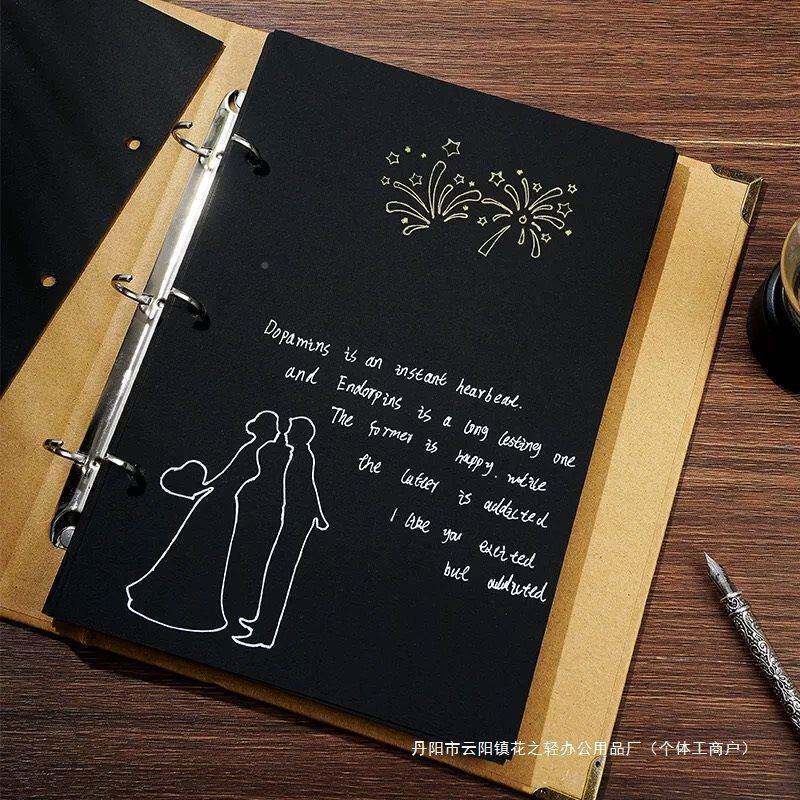 Dopamins is an instant hearbeat.
and Endorpins is a long lesting one
The former is happy. while
the latter is addicted
I like you exited
but addicted
丹阳市云阳镇花之轻办公用品厂（个体工商户）